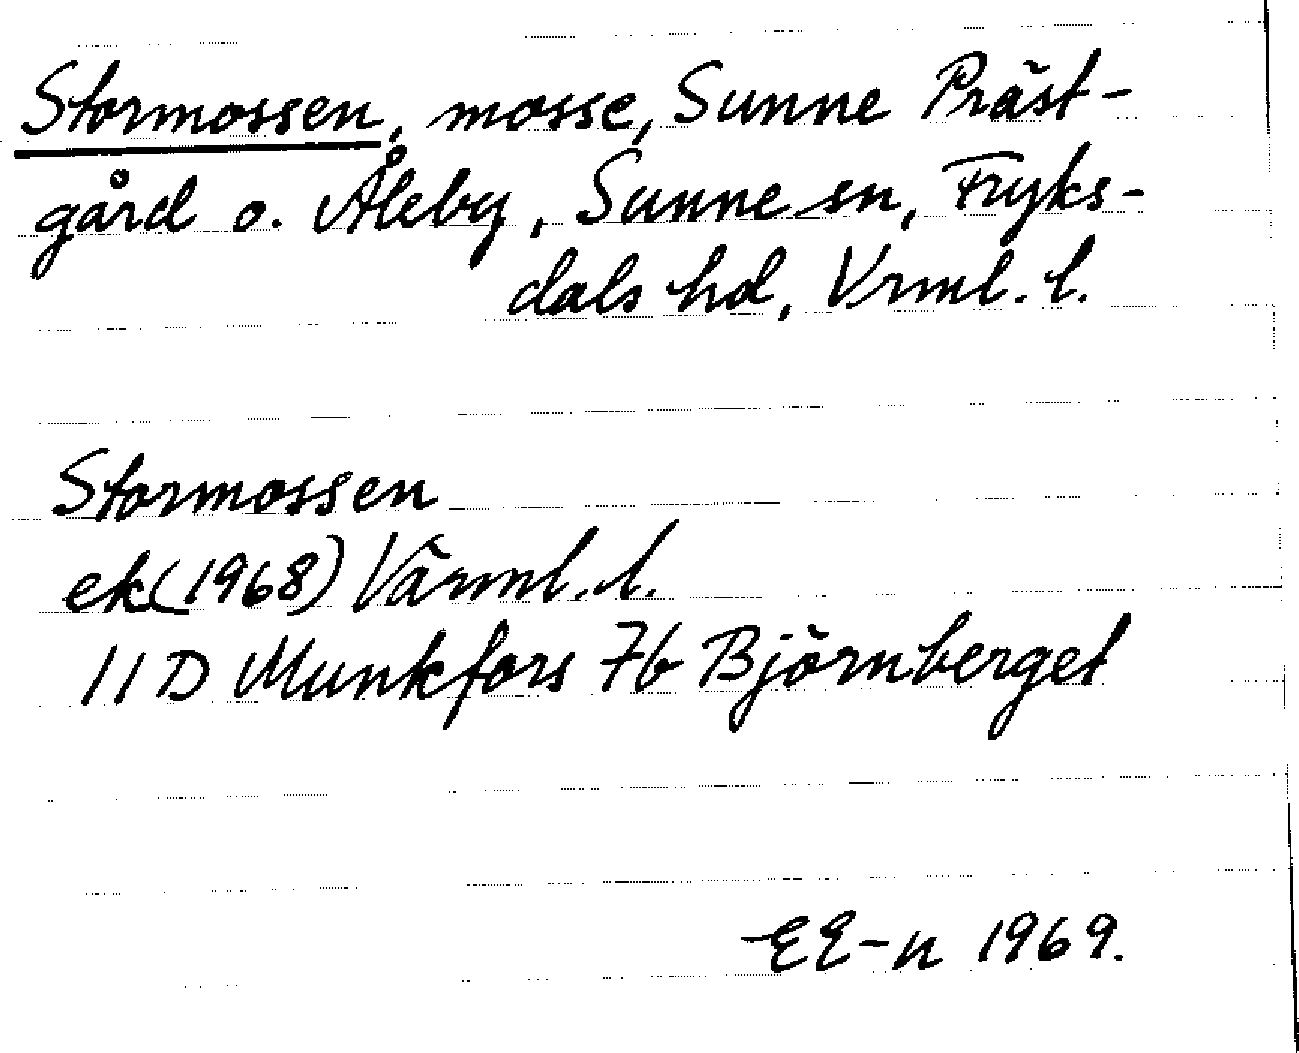 Stormossen, mosse, Sunne Präst-
gård o. Åleby, Sunne sn, Fryks-
dals hd, Vrml. l.
Stormossen
ek (1968) Värml. l.
11 D Munkfors 7b Björnberget
EE-n 1969.